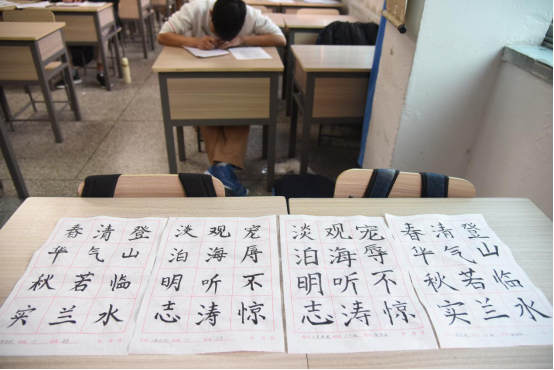 登山临水
清气若兰
春华秋实
宠辱不惊
观海听涛
淡泊明志
宠辱不惊
观海听涛
淡泊明志
登山临水
清气若兰
春华秋实